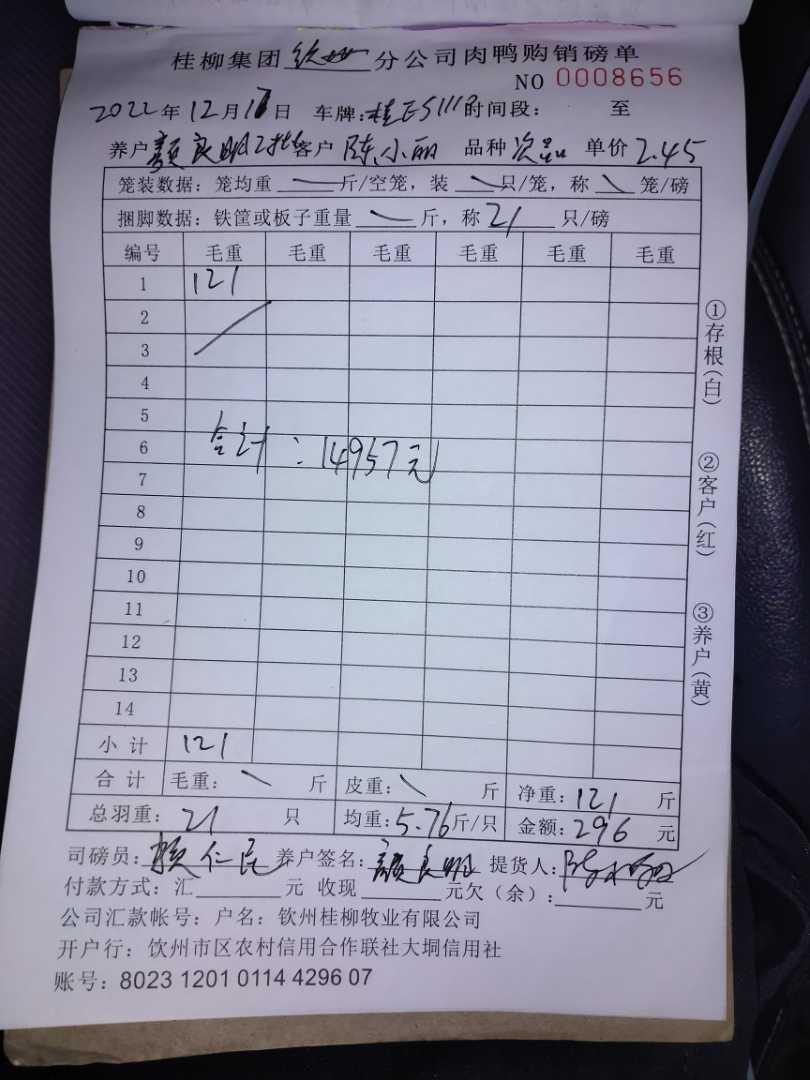 桂柳集团钦州分公司肉鸭购销磅单
NO 0008656
2022年12月17日 车牌:桂E5111 时间段: 至
养户 颜良明2批 客户 陈小丽 品种 次品 单价 2.45
笼装数据: 笼均重 斤/空笼, 装 只/笼, 称 笼/磅
捆脚数据: 铁筐或板子重量 斤, 称 21 只/磅
编号 毛重 毛重 毛重 毛重 毛重 毛重
1 121
2
3
4
5
6
合计:14957元
7
8
9
10
11
12
13
14
小计 121
合计 毛重: 斤 皮重: 斤 净重: 121 斤
总羽重: 21 只 均重: 5.76斤/只 金额: 296 元
司磅员: 颜仁良 养户签名: 颜良明 提货人: 陈小丽
付款方式: 汇 元 收现 元欠(余): 元
公司汇款帐号: 户名: 钦州桂柳牧业有限公司
开户行: 饮州市区农村信用合作联社大垌信用社
账号: 8023 1201 0114 4296 07
①存根(白)
②客户(红)
③养户(黄)